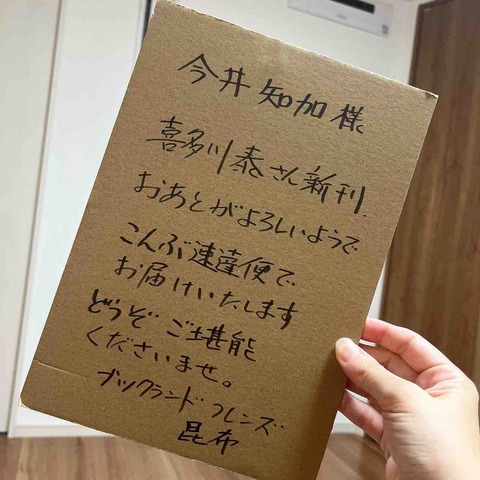 今井 知加 様
喜多川 泰さん新刊
おあとがよろしいようで
こんぶ速達便で
お届けいたします
どうぞ ご堪能
くださいませ。
ブックランドフレンズ
昆布